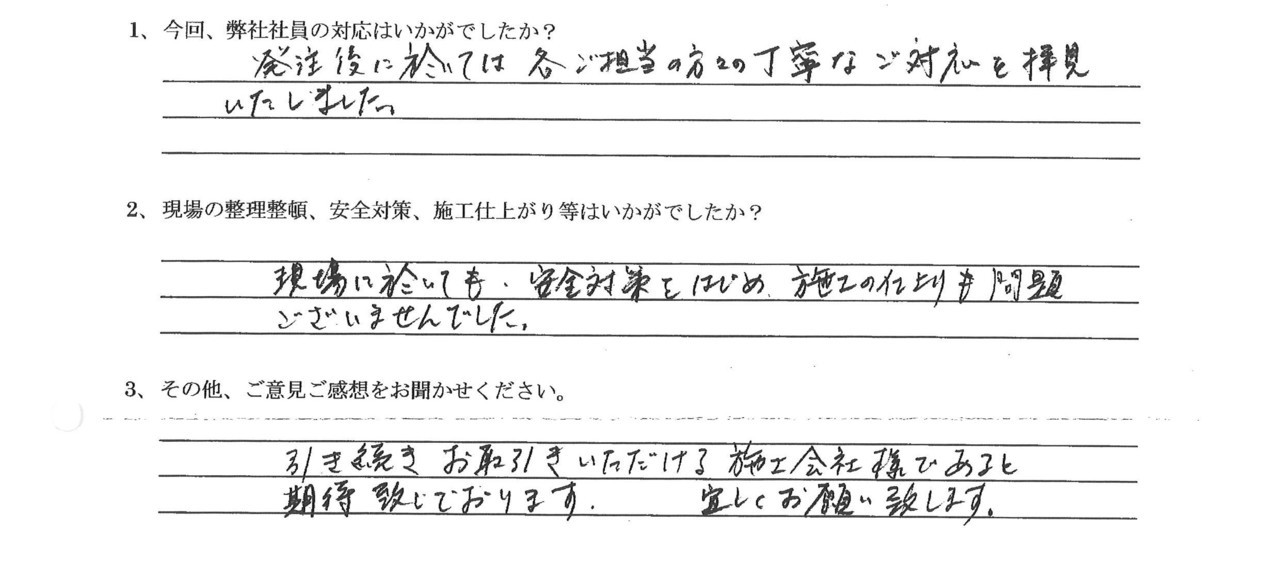 1、今回、弊社社員の対応はいかがでしたか？
発注後に於いては各ご担当の方々の丁寧なご対応を拝見
いたしました。
2、現場の整理整頓、安全対策、施工仕上がり等はいかがでしたか？
現場に於いても、安全対策をはじめ、施工の仕上りも問題
ございませんでした。
3、その他、ご意見ご感想をお聞かせください。
引き続きお取引きいただける施工会社様であると
期待致しております。 宜しくお願い致します。